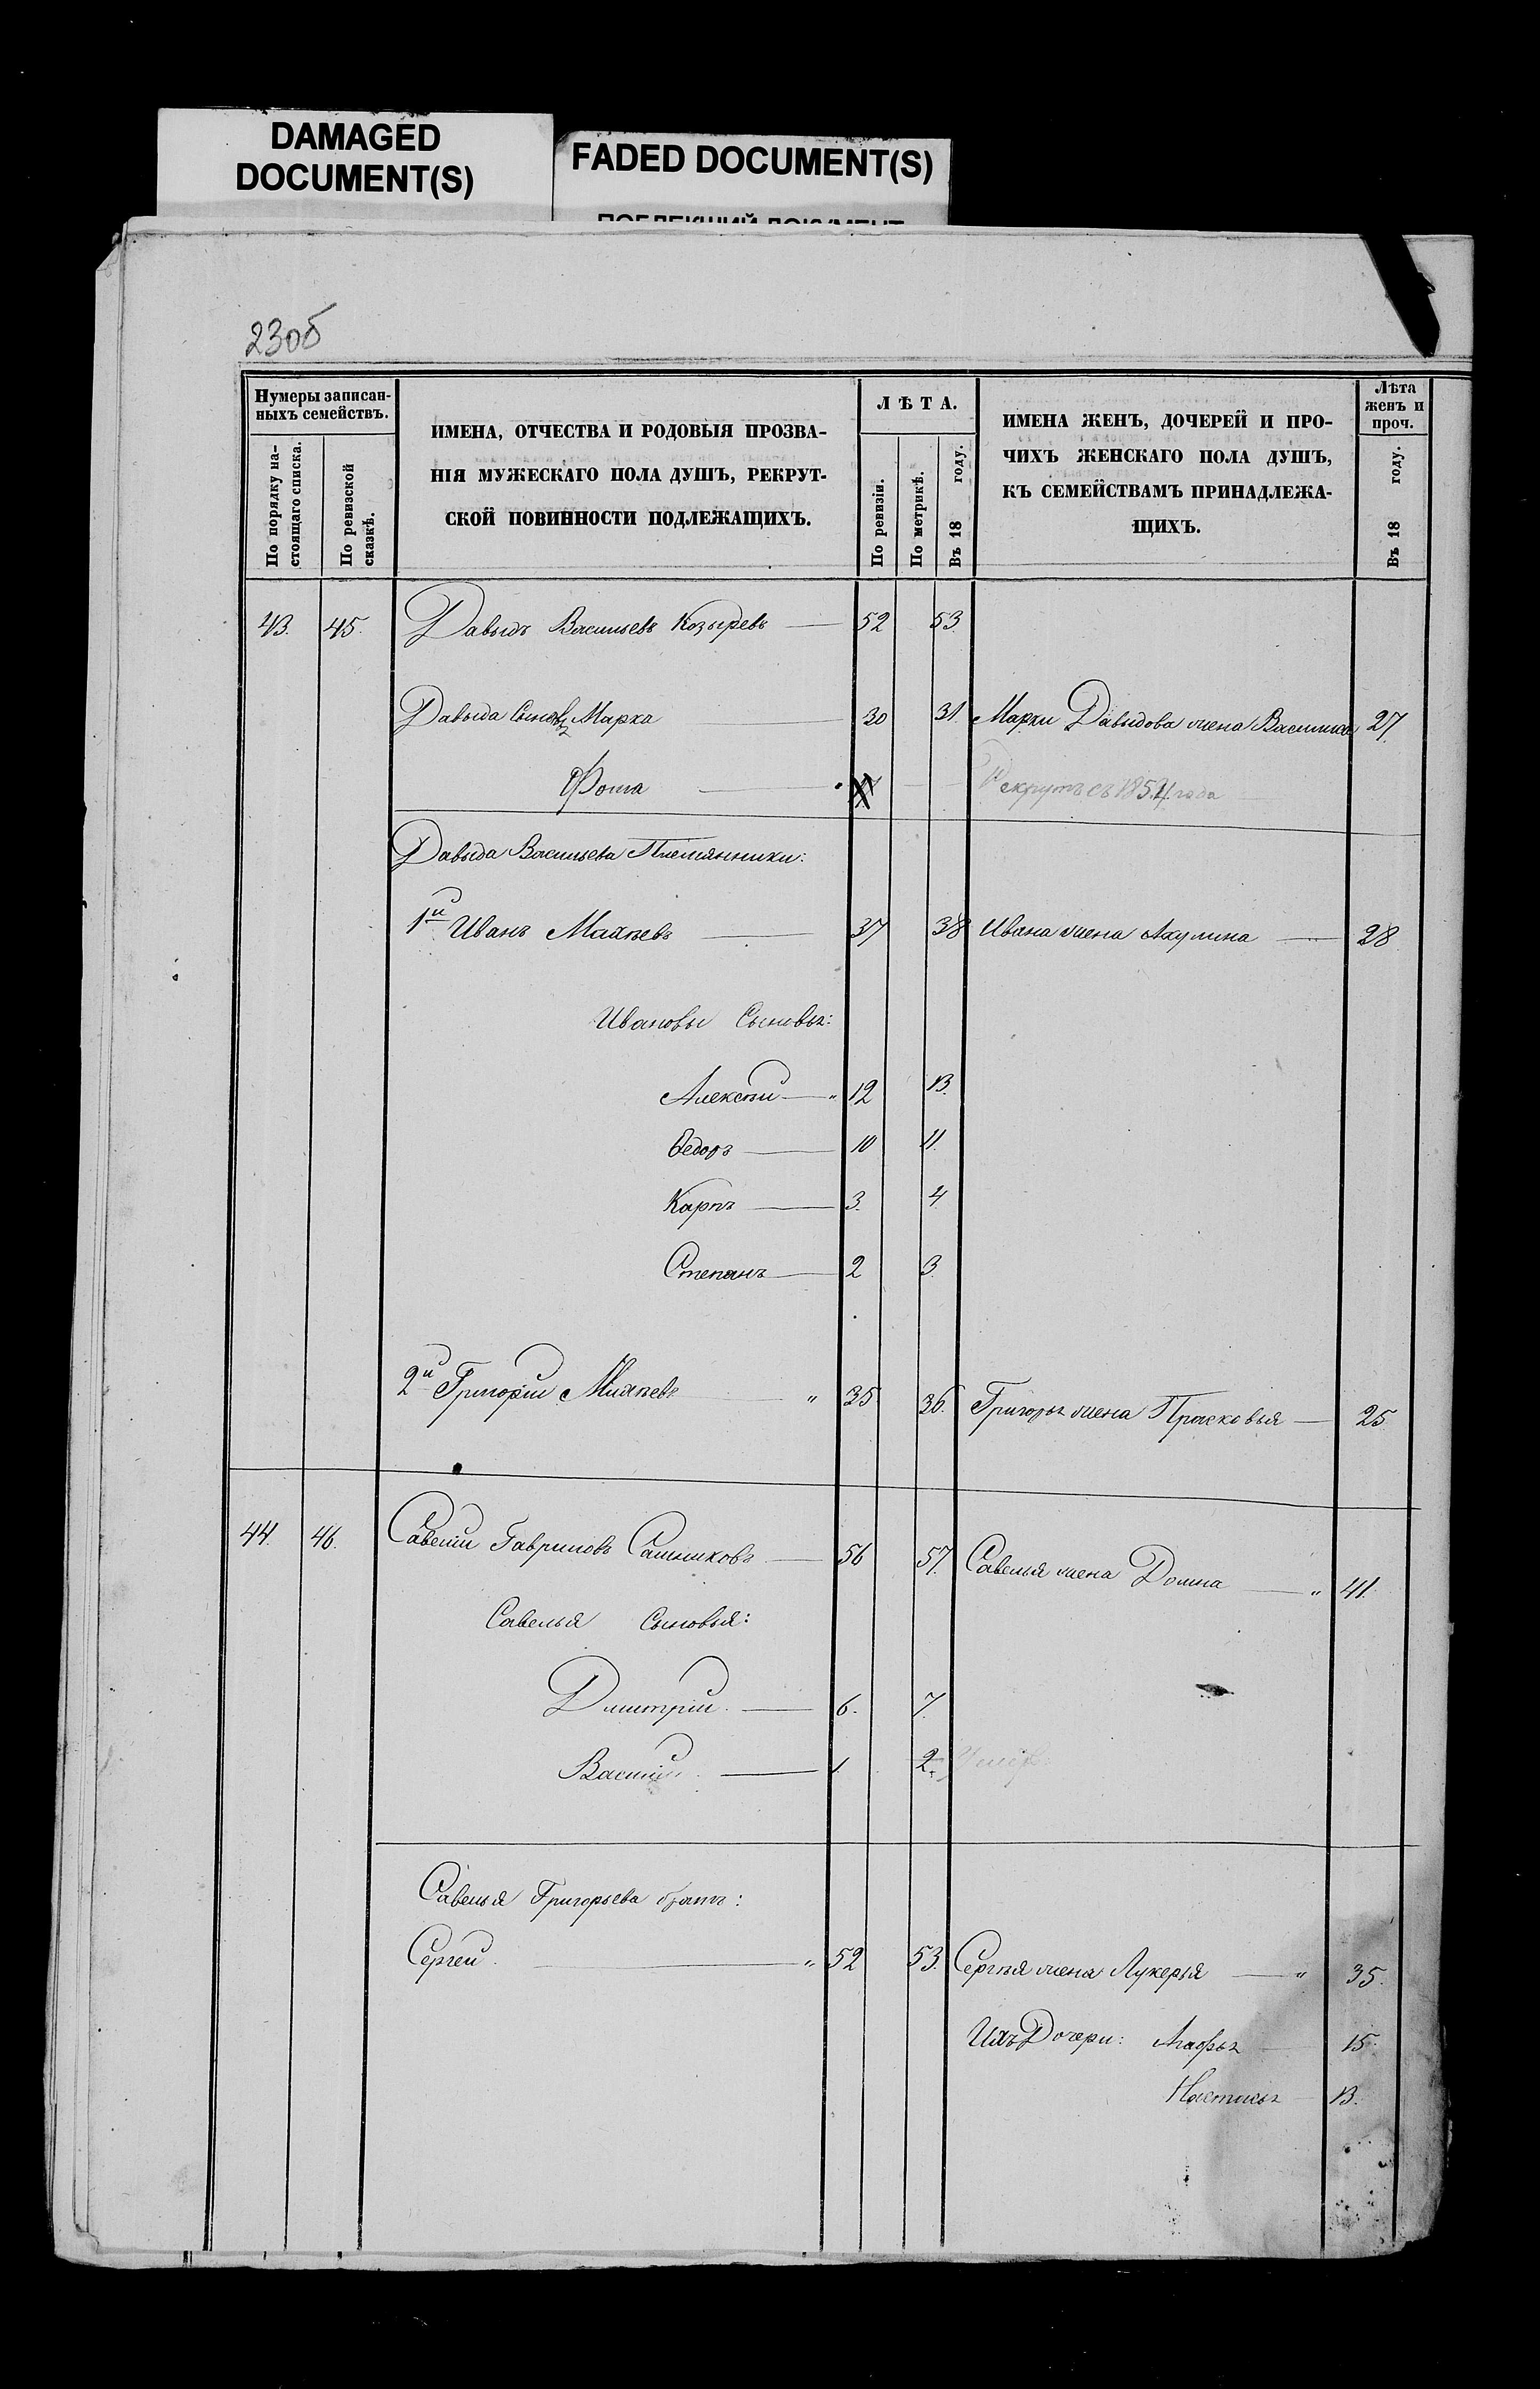 DAMAGED
DOCUMENT(S)
FADED DOCUMENT(S)
ПОБЛЕКШИЙ ДОКУМЕНТ
230б
Нумеры записан-
ныхъ семействъ.
По порядку на-
стоящаго списка.
По ревизской
сказкѣ.
ИМЕНА, ОТЧЕСТВА И РОДОВЫЯ ПРОЗВА-
НІЯ МУЖЕСКАГО ПОЛА ДУШЪ, РЕКРУТ-
СКОЙ ПОВИННОСТИ ПОДЛЕЖАЩИХЪ.
ЛѢТА.
По ревизіи.
По метрикѣ.
Въ 18 году.
ИМЕНА ЖЕНЪ, ДОЧЕРЕЙ И ПРО-
ЧИХЪ ЖЕНСКАГО ПОЛА ДУШЪ,
КЪ СЕМЕЙСТВАМЪ ПРИНАДЛЕЖА-
ЩИХЪ.
Лѣта
женъ и
проч.
Въ 18 году.
43. 45. Давыдъ Васильевъ Козыревъ 52 53.
Давыда Сыновья Марка 30 31. Марки Давыдова жена Василиса 27.
Фома Рекрутъ съ 1854 года
Давыда Васильева Племянники:
1й Иванъ Михѣевъ 37 38 Ивана жена Акулина 28
Ивановы Сыновья:
Алексѣй 12 13.
Ѳедоръ 10 11.
Карпъ 3. 4
Степанъ 2 3.
2й Григорій Михѣевъ 35. 36. Григорья жена Прасковья 25.
44. 46. Савелій Гавриловъ 56 57. Савелья жена Домна 41.
Савелья Сыновья:
Дмитрій 6. 7.
Василій 1 2. Умеръ
Савелья Григорьева братъ:
Сергей 52 53. Сергѣя жена Лукерья 35.
Ихъ Дочери: Агафья 15.
Настасья 13.